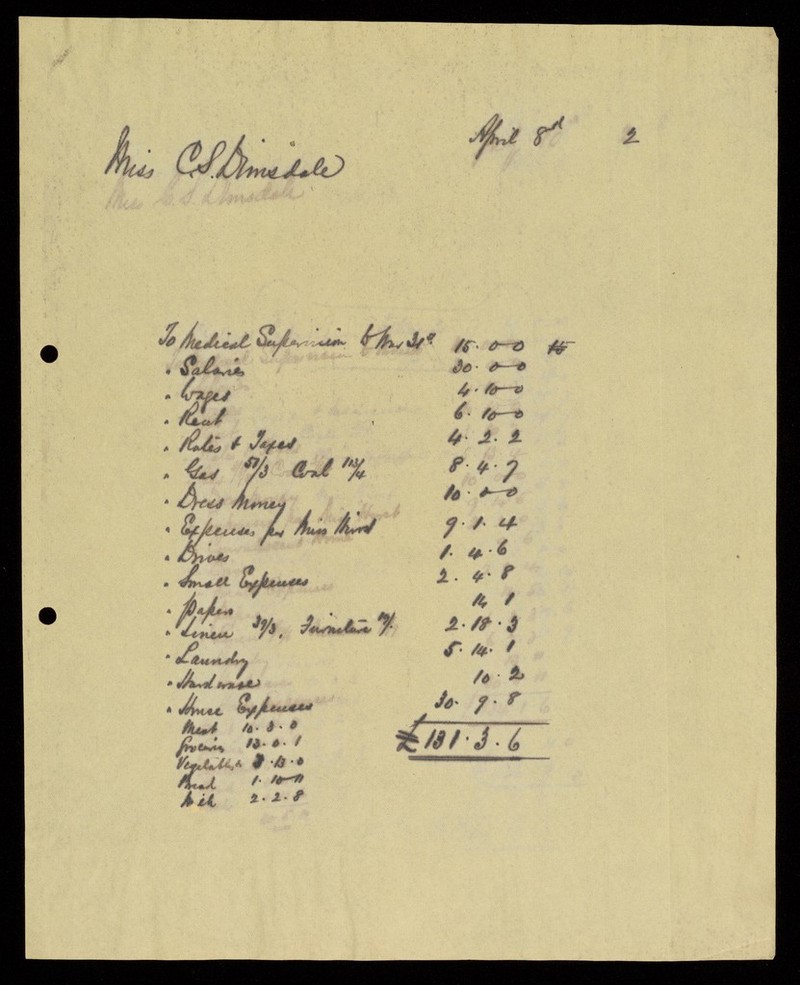 April 8th 2
Miss C.S. Dimsdale
Miss C.S. Dimsdale
To Medical Supervision to Mar 31st 15. 0 0 15
" Salaries 30. 0 0
" Wages 4. 10 0
" Rent 6. 10 0
" Rates & Taxes 4. 2. 2
" Gas 51/3 Coal 113/4 8. 4. 7
" Dress Money 10. 0 0
" Expenses per Miss 9. 1. 4
" Drives 1. 4. 6
" Small Expenses 2. 4. 8
" Papers 14 1
" Linen 39/3, Furniture 19/. 2. 18. 3
" Laundry 5. 14. 1
" Hardware 10. 2
" House Expenses 30. 9. 8
Meat 10. 3. 0
£131. 3. 6
Groceries 13. 0. 1
Vegetables 3. 13. 0
Bread 1. 10 11
Milk 2. 2. 8